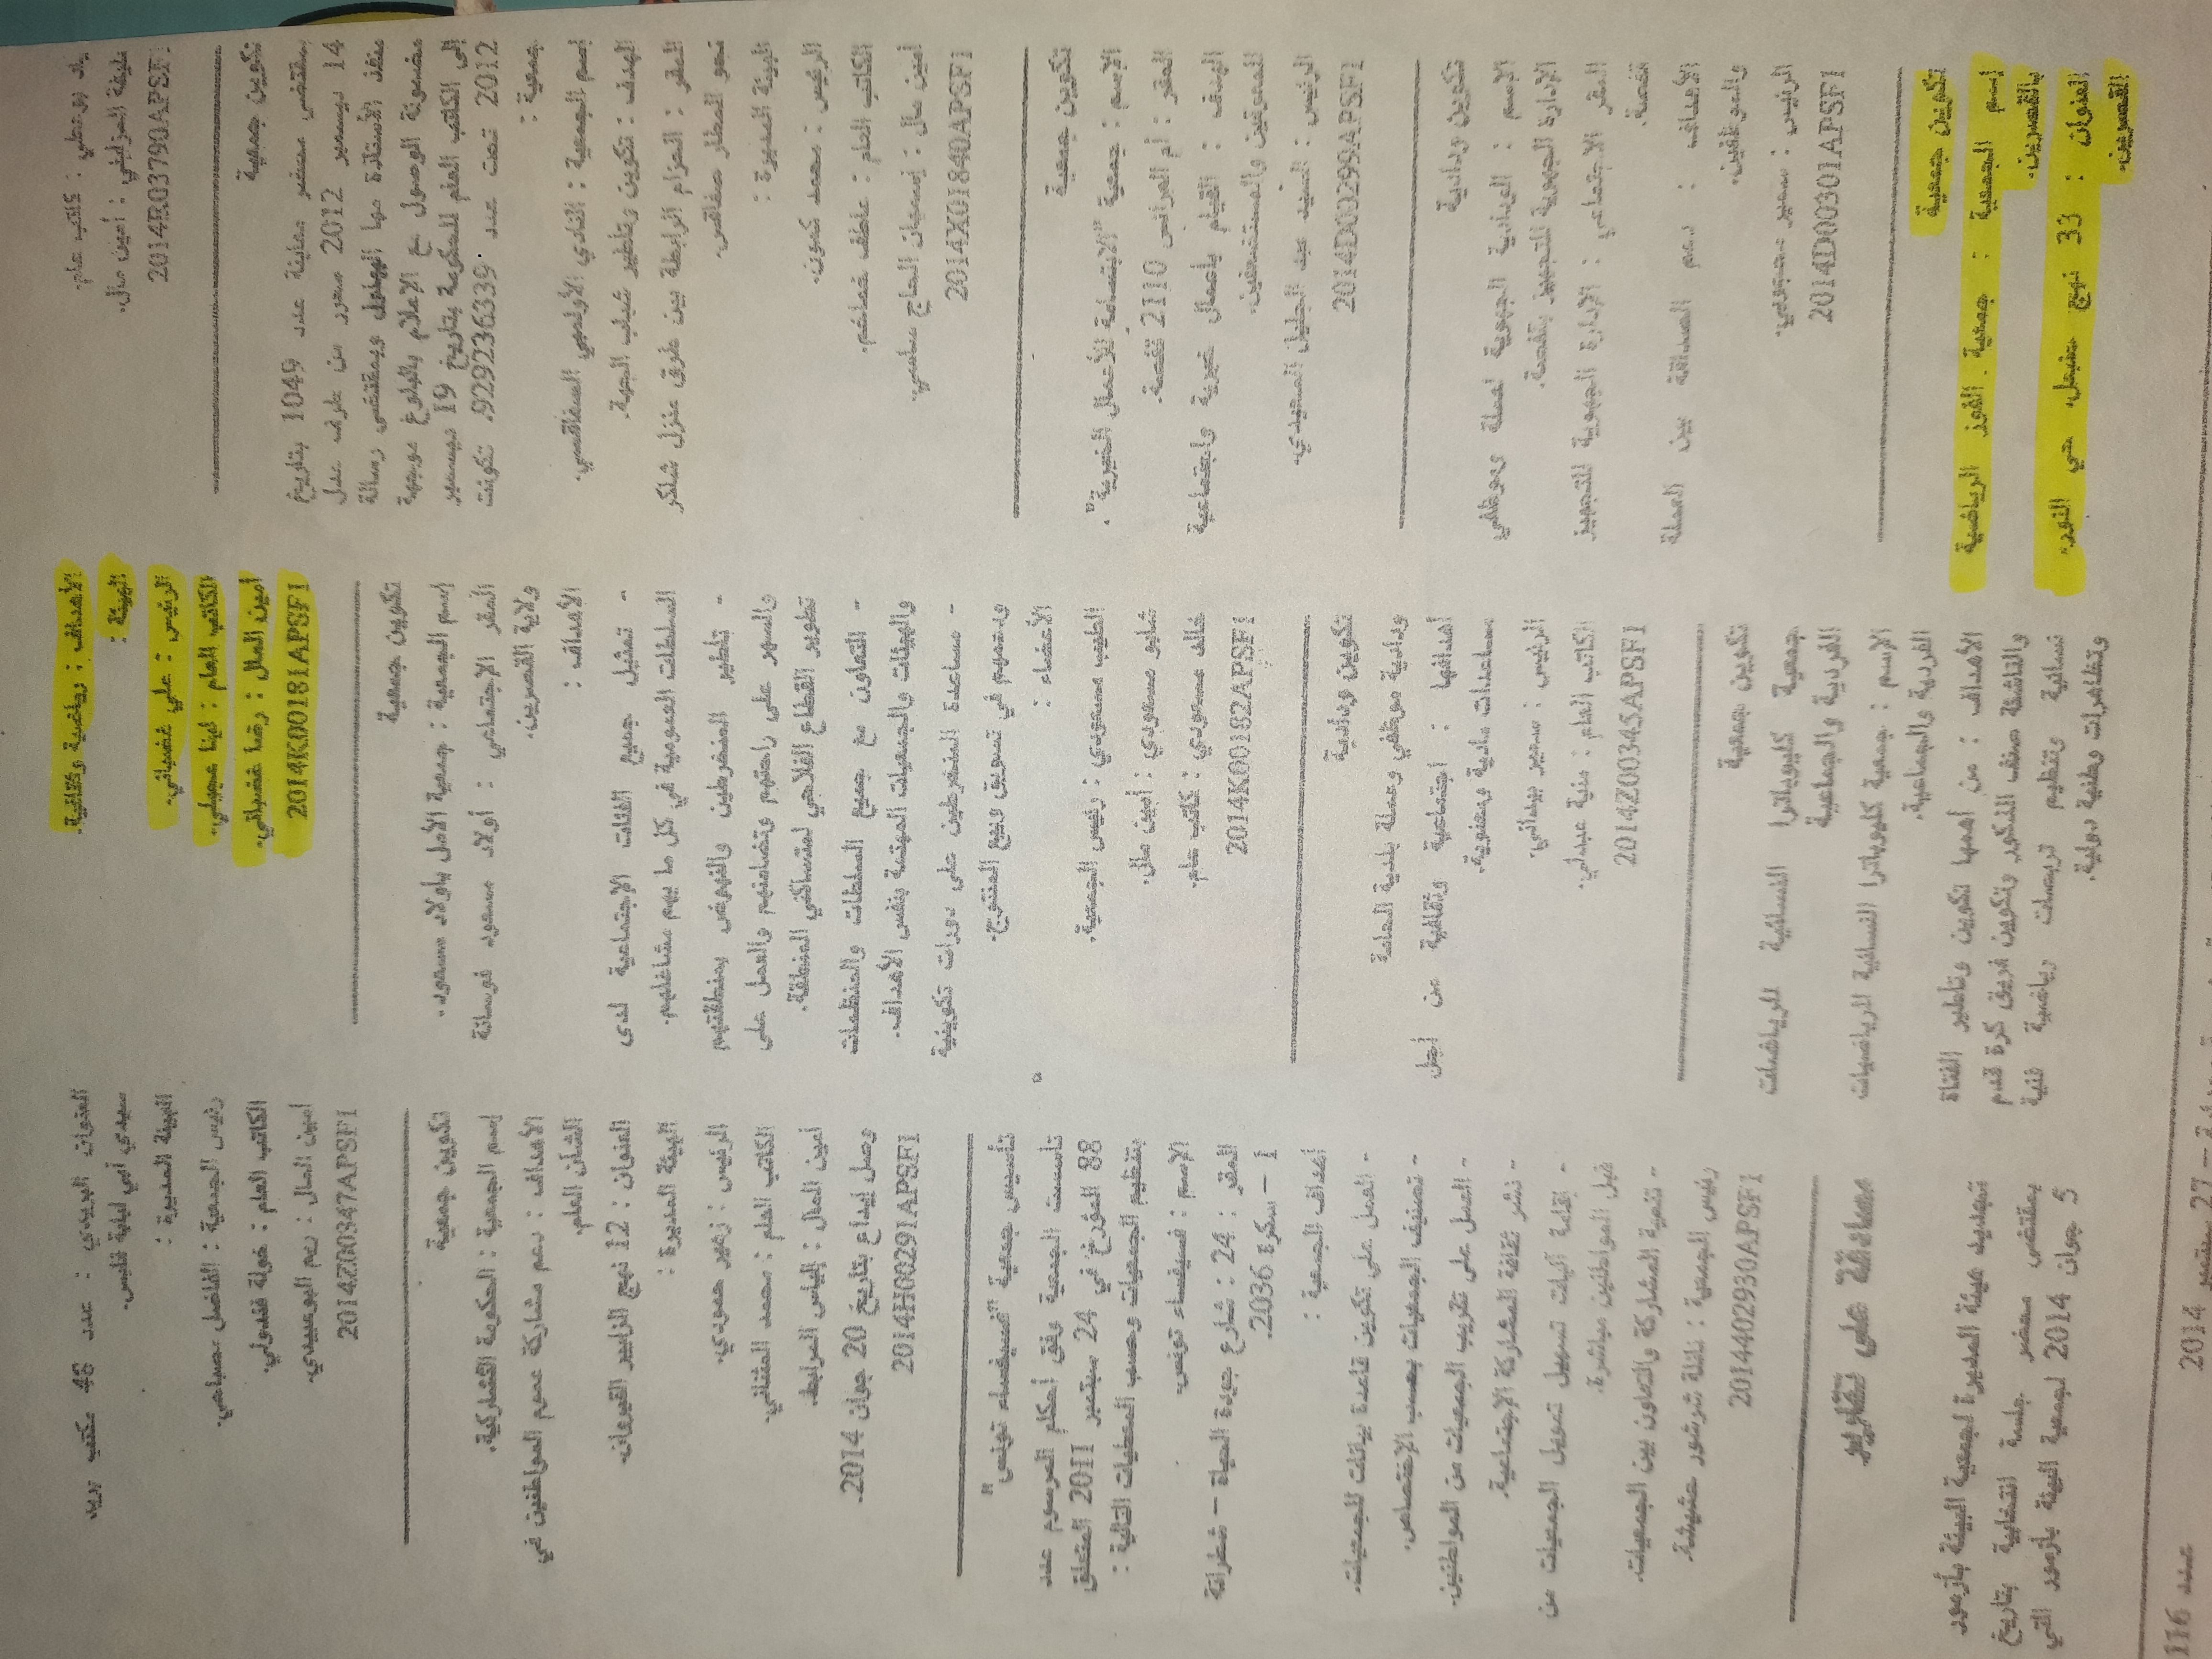 يات بوعطي : كاتب عام.
خليفة العزابلي : أمين مال.
2014R03790APSF1
تكوين جمعية
بمقتضى محضر معاينة عدد 1049 بتاريخ
14 ديسمبر 2012 محرر من طرف عدل
منفذ الأستاذة مها البهلول وبمقتضى رسالة
مضمونة الوصول مع الإعلام بالبلوغ موجهة
إلى الكاتب العام للحكومة بتاريخ 19 ديسمبر
2012 تحت عدد 929236339. تكونت
جمعية :
إسم الجمعية : النادي الأولمبي الصفاقسي.
الهدف : تكوين وتأطير شباب الجهة.
المقر : الحزام الرابطة بين طرق منزل شاكر
نحو المطار صفاقس.
الهيئة المديرة :
الرئيس : محمد كمون.
الكاتب العام : عاطف خماخم.
أمين مال : إسمجان الحاج ساسي.
2014X01840APSF1
تكوين جمعية
الإسم : جمعية "الابتسامة للأعمال الخيرية".
المقر : أم العرائس 2110 قفصة.
الهدف : القيام بأعمال خيرية واجتماعية
للمعوقين والمستضعفين.
الرئيس : السيد عبد الجليل السعيدي.
2014D00299APSF1
تكوين ودادية
الإسم : الودادية الجهوية لعملة وموظفي
الإدارة الجهوية للتجهيز بقفصة.
المقر الاجتماعي : الإدارة الجهوية للتجهيز
قفصة.
الأهداف : دعم الصداقة بين العملة
والموظفين.
الرئيس : سمير حيدوسي.
2014D00301APSF1
تكوين جمعية
إسم الجمعية : جمعية الفوز الرياضية
بالقصرين.
العنوان : 33 نهج حنبعل، حي النور،
القصرين.
الأهداف : رياضية وثقافية.
الهيئة :
الرئيس : علي غضباني.
الكاتب العام : لبنا عجيلي.
أمين المال : رضا غضباني.
2014K00181APSF1
تكوين جمعية
إسم الجمعية : جمعية الأمل بأولاد مسعود.
المقر الإجتماعي : أولاد مسعود فوسانة
ولاية القصرين.
الأهداف :
- تمثيل جميع الفئات الإجتماعية لدى
السلطات العمومية في كل ما يهم مشاغلهم.
- تأطير المنخرطين والنهوض بمنطقتهم
والسهر على راحتهم وتضامنهم والعمل على
تطوير القطاع الفلاحي لمتساكني المنطقة.
- التعاون مع جميع السلطات والمنظمات
والهيئات والجمعيات المهتمة بنفس الأهداف.
- مساعدة المنخرطين على دورات تكوينية
ودعمهم في تسويق وبيع المنتوج.
الأعضاء :
الطيب مسعودي : رئيس الجمعية.
شابو مسعودي : أمين مال.
خالد مسعودي : كاتب عام.
2014K00182APSF1
تكوين ودادية
ودادية موظفي وعملة بلدية الحامة
أهدافها : اجتماعية وثقافية من أجل
مساعدات مادية ومعنوية.
الرئيس : سمير بيداني.
الكاتب العام : منية عبدلي.
2014Z00345APSF1
تكوين جمعية
جمعية كليوباترا النسائية للرياضات
الفردية والجماعية
الإسم : جمعية كليوباترا النسائية للرياضات
الفردية والجماعية.
الأهداف : من أهمها تكوين وتأطير الفتاة
والناشئة صنف الذكور وتكوين فريق كرة قدم
نسائية وتنظيم تربصات رياضية فنية
وتظاهرات وطنية دولية.
العنوان البريدي : عدد 48 مكتب بريد
سيدي أبي لبابة قابس.
الهيئة المديرة :
رئيس الجمعية : الفاضل عصباحي.
الكاتب العام : خولة قندولي.
أمين المال : ريم البوعبيدي.
2014Z00347APSF1
تكوين جمعية
إسم الجمعية : الحكومة التشاركية.
الأهداف : دعم مشاركة عموم المواطنين في
الشأن العام.
العنوان : 12 نهج الزابير القيروان.
الهيئة المديرة :
الرئيس : زهير حمودي.
الكاتب العام : محمد العثماني.
أمين المال : إلياس المرابط.
وصل إيداع بتاريخ 20 جوان 2014.
2014H00291APSF1
تأسيس جمعية "فسيفساء تونس"
تأسست الجمعية وفق أحكام المرسوم عدد
88 المؤرخ في 24 سبتمبر 2011 المتعلق
بتنظيم الجمعيات وحسب المعطيات التالية :
الإسم : فسيفساء تونس.
المقر : 24 : شارع جودة الحياة – شطرانة
1 – سكرة 2036.
أهداف الجمعية :
- العمل على تكوين قاعدة بيانات للجمعيات.
- تصنيف الجمعيات بحسب الإختصاص.
- العمل على تقريب الجمعيات من المواطنين.
- نشر ثقافة المشاركة الإجتماعية.
- إقامة آليات تسهيل تمويل الجمعيات من
قبل المواطنين مباشرة.
- تنمية المشاركة والتعاون بين الجمعيات.
رئيس الجمعية : نائلة شرشور حشيشة.
2014402930APSF1
مصادقة على تقارير
تجديد هيئة المديرة لجمعية البيئة بأزمور
بمقتضى محضر جلسة انتخابية بتاريخ
5 جوان 2014 لجمعية البيئة بأزمور التي
عدد 116
27 سبتمبر 2014